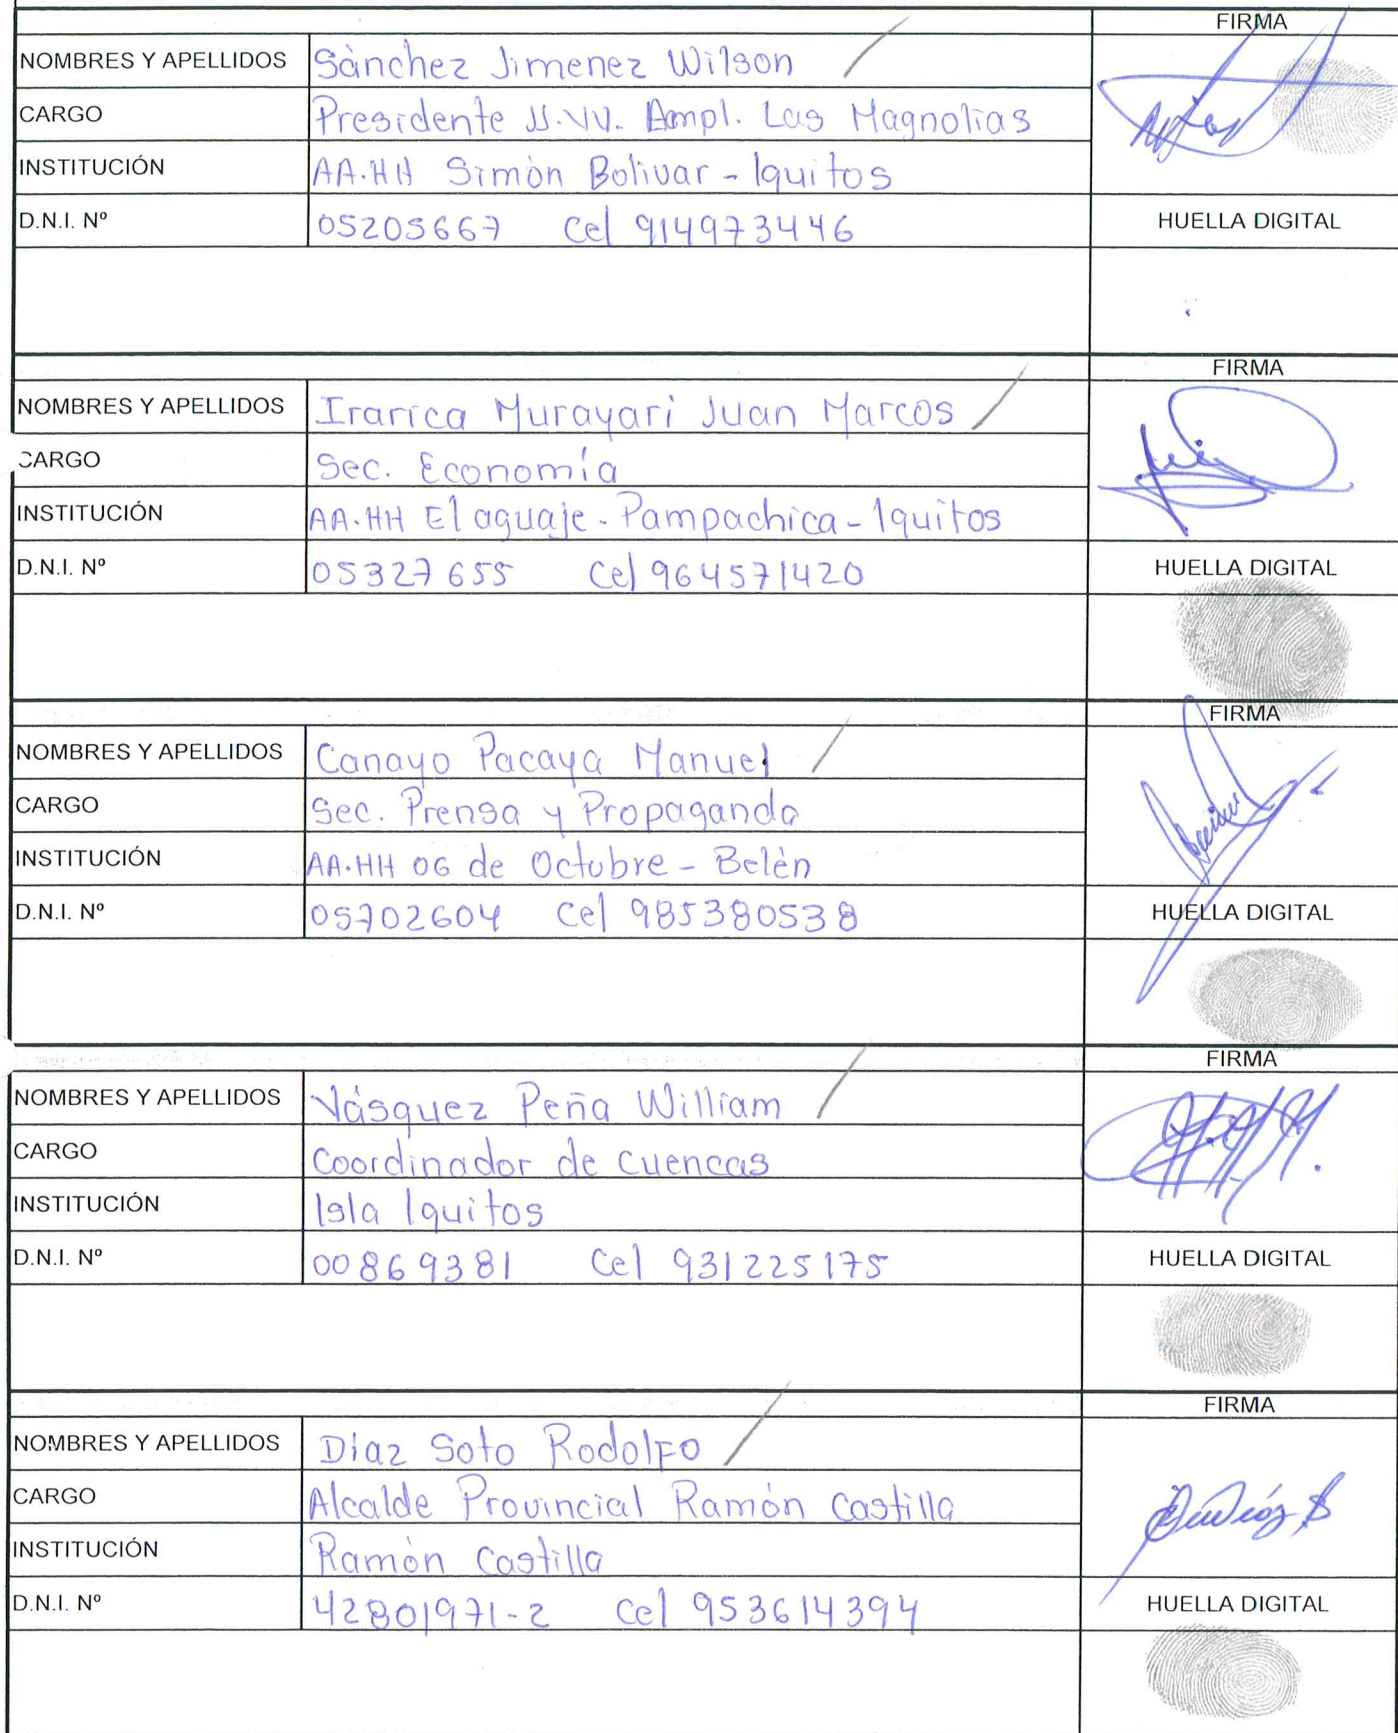 FIRMA
NOMBRES Y APELLIDOS Sànchez Jimenez Wilson
CARGO Presidente JJ.VV. Ampl. Las Magnolias
INSTITUCIÓN AA.HH Simòn Bolivar - Iquitos
D.N.I. Nº 05205667 Cel 914973446 HUELLA DIGITAL
FIRMA
NOMBRES Y APELLIDOS Irarica Murayari Juan Marcos
CARGO Sec. Economía
INSTITUCIÓN AA.HH El aguaje - Pampachica - Iquitos
D.N.I. Nº 05327655 Cel 964571420 HUELLA DIGITAL
FIRMA
NOMBRES Y APELLIDOS Canayo Pacaya Manuel
CARGO Sec. Prensa y Propaganda
INSTITUCIÓN AA.HH 06 de Octubre - Belèn
D.N.I. Nº 05702604 Cel 985380538 HUELLA DIGITAL
FIRMA
NOMBRES Y APELLIDOS Vásquez Peña William
CARGO Coordinador de cuencas
INSTITUCIÓN Isla Iquitos
D.N.I. Nº 00869381 Cel 931225175 HUELLA DIGITAL
FIRMA
NOMBRES Y APELLIDOS Díaz Soto Rodolfo
CARGO Alcalde Provincial Ramòn Castilla
INSTITUCIÓN Ramòn Castilla
D.N.I. Nº 42801971-2 Cel 953614394 HUELLA DIGITAL